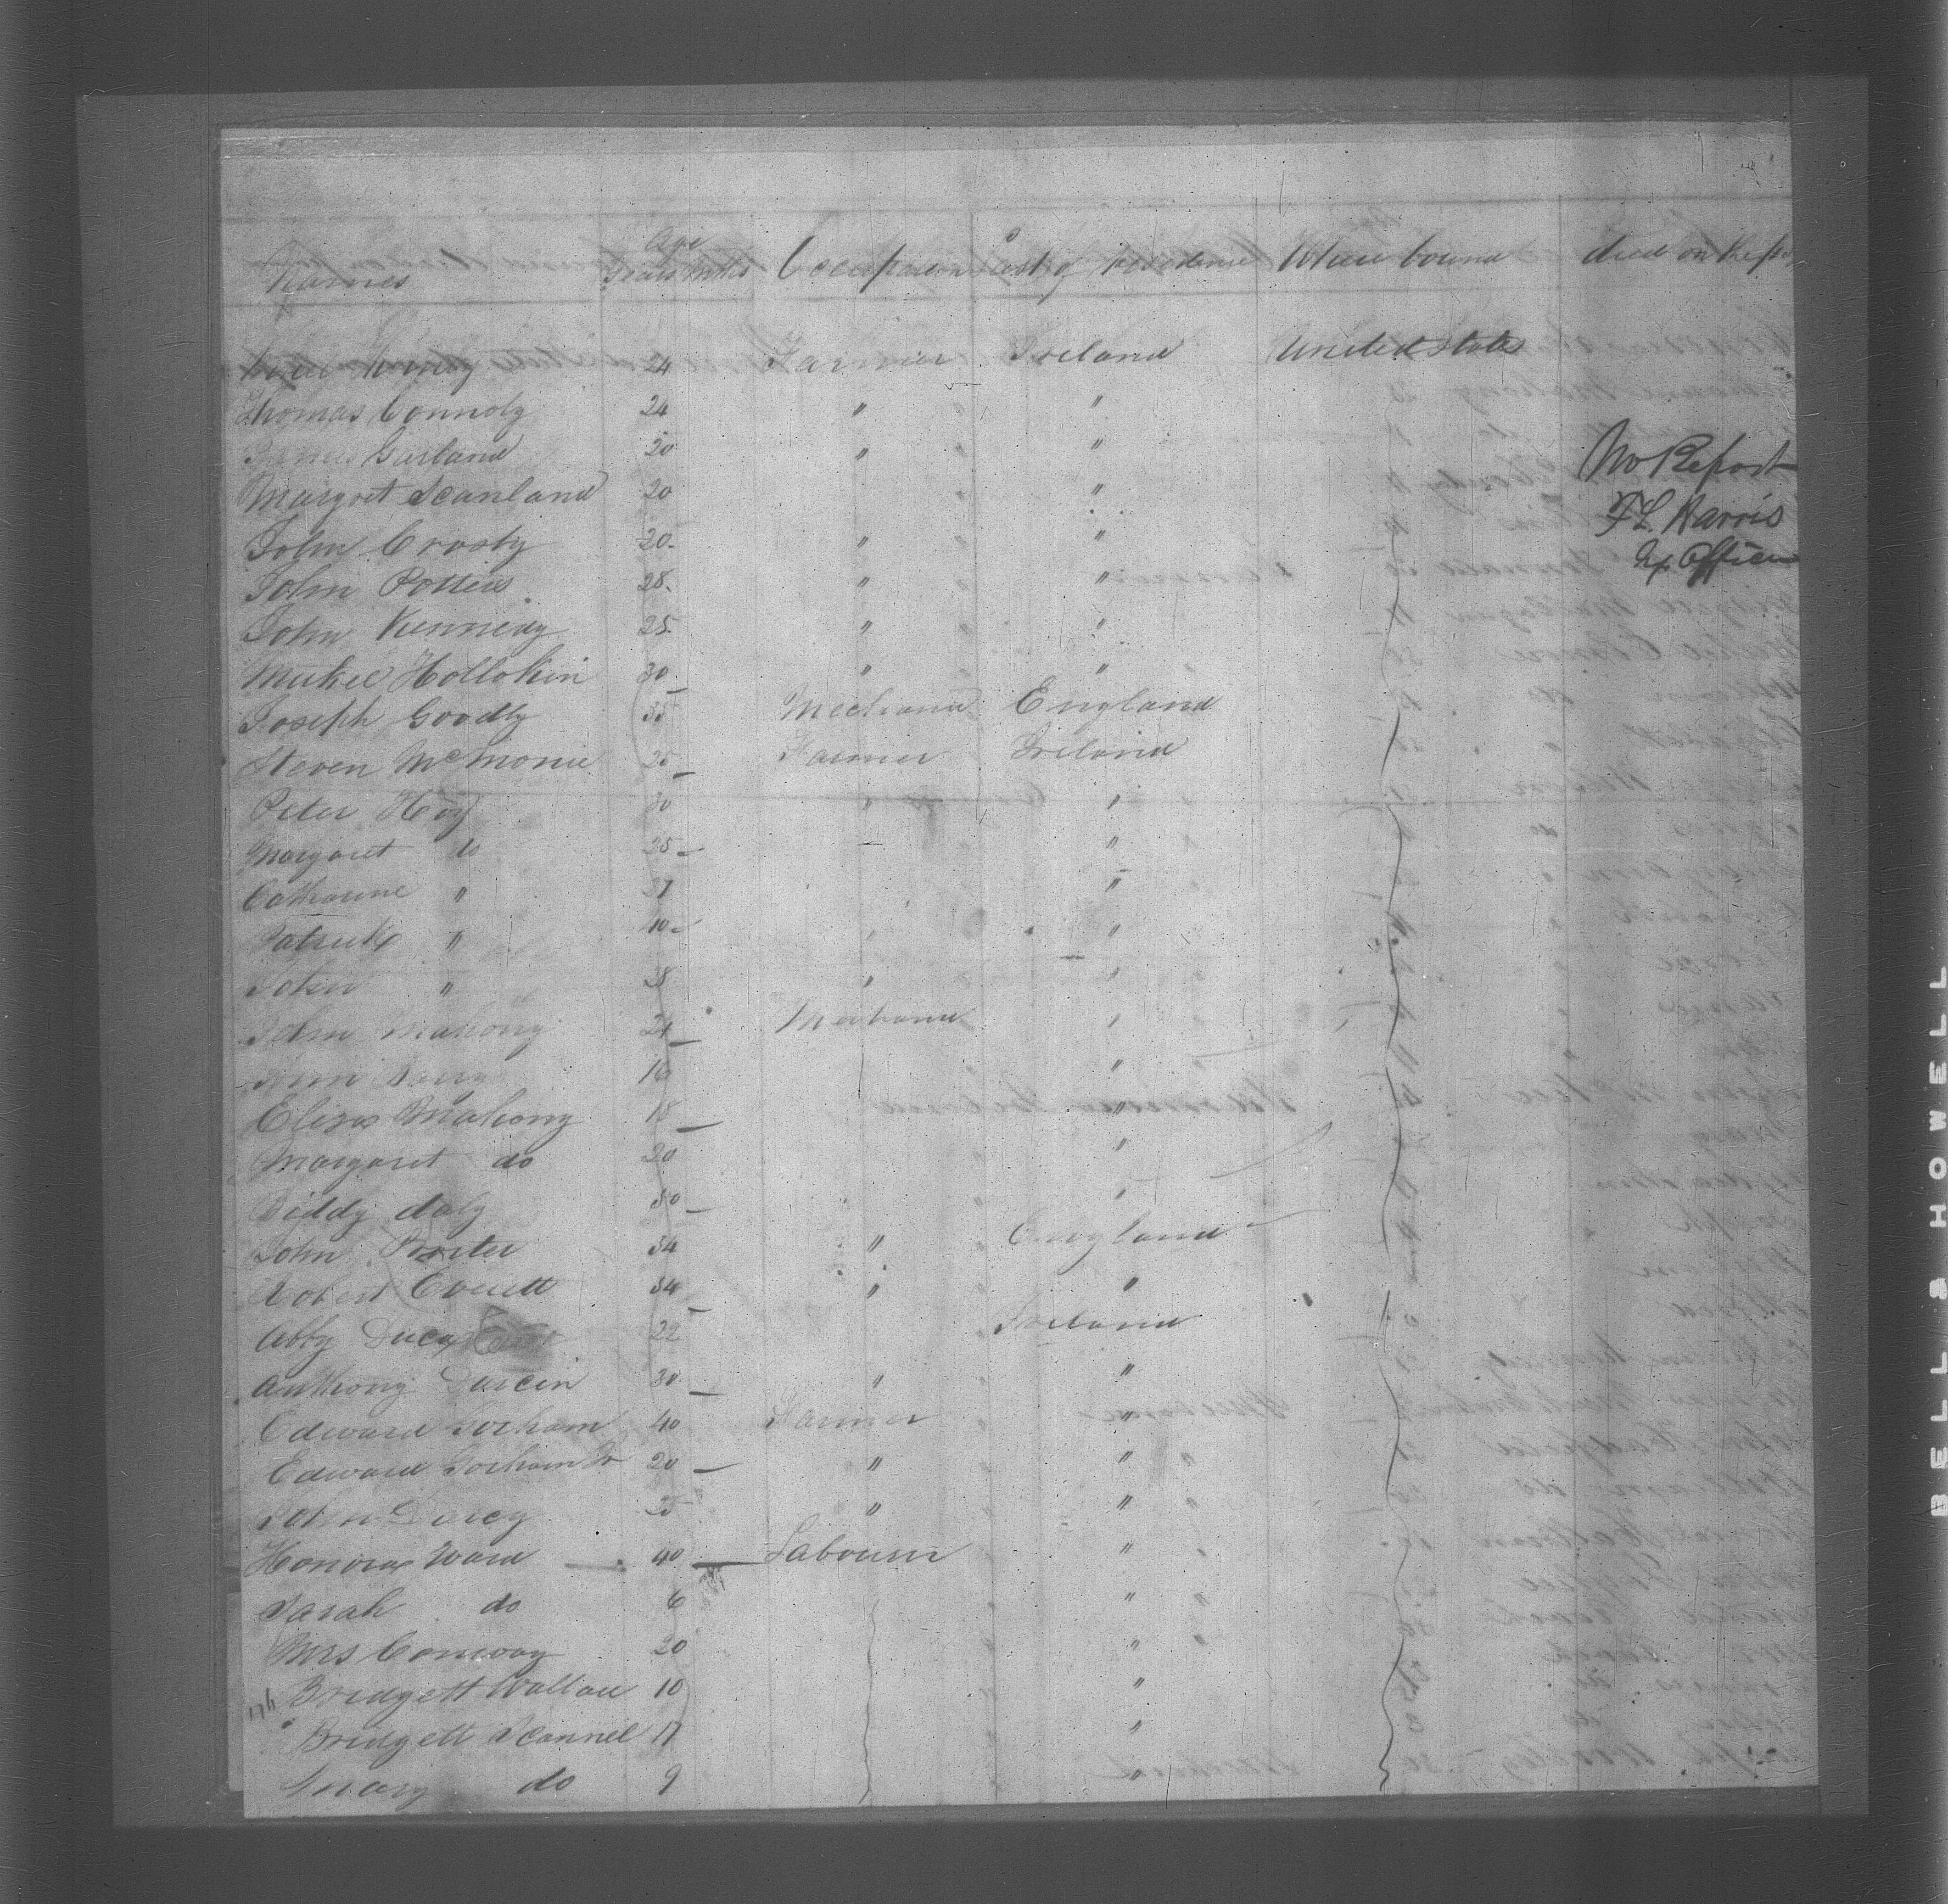 Names Age Years Mths Occupation Last of residence Where bound died on
24 Farmer Ireland United States
Thomas Connoly 24 " "
James Garland 20 " "
No Report
Margret Scanland 20 "
F L Harris
John Crosby 20 " "
Officer
John Potters 28 " "
John Kennedy 25 " "
Mickel Hollokin 30 " "
Joseph Goodly 35 Mechanic England
Steven McMonie 25 Farmer Ireland
Peter Hoy 30 " "
Margaret do 25 "
Catharine " 27 "
Patrick " 10 "
John " 28 " "
John Mahony 24 Mechanic "
16 "
Eliza Mahony 18 "
Margaret do 20 "
Biddy daly 50 "
John Porter 34 " England
Robert Everett 34 " "
Abby 22 Ireland
Anthony Durcin 30 " "
Edward Gorham 40 Farmer "
Edward Gorham Jr 20 " "
John Darcy 25 " "
Honora Ward 40 Labourer "
Sarah do 6 "
Mrs Conway 20 "
Bridgett Wallace 10 "
Bridgett Scannel 17 "
Mary do 9 "
BELL & HOWELL